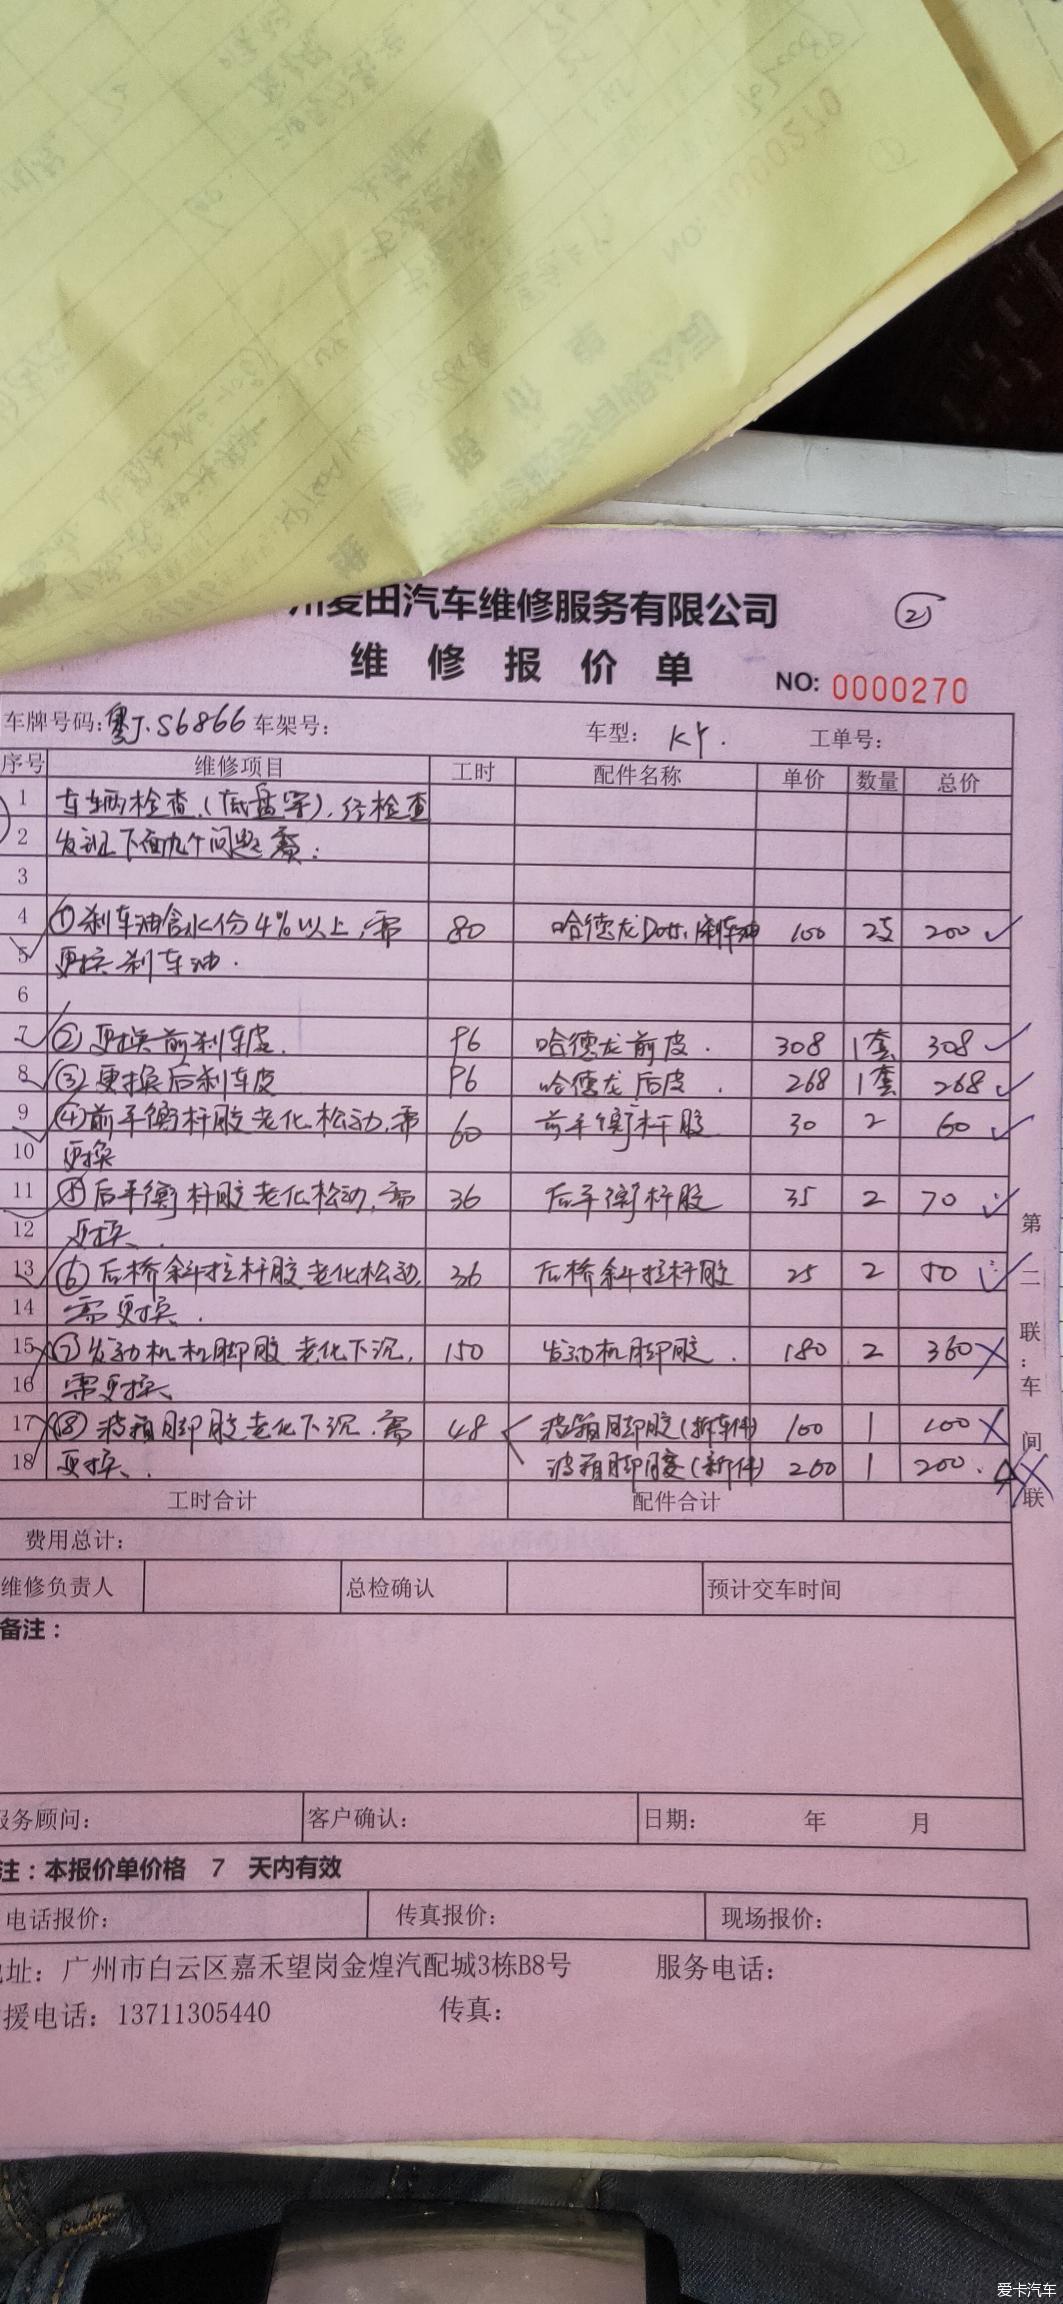 麦田汽车维修服务有限公司 ②
维修报价单 NO: 0000270
车牌号码: 粤J.S6866 车架号: 车型: K4. 工单号:
序号 维修项目 工时 配件名称 单价 数量 总价
1 车辆检查.(底盘等).经检查
2 发现下面几个问题:
3
4 ①刹车油含水份4%以上,需 80 哈德龙Dot4.刹车油 100 2支 200 ✓
5 更换刹车油.
6
7 ②更换前刹车皮. 96 哈德龙前皮. 308 1套 308 ✓
8 ③更换后刹车皮 96 哈德龙后皮. 268 1套 268 ✓
9 ④前平衡杆胶老化松动,需 60 前平衡杆胶 30 2 60 ✓
10 更换
11 ⑤后平衡杆胶老化松动,需 36 后平衡杆胶 35 2 70 ✓
12 更换.
13 ⑥后桥斜拉杆胶老化松动, 36 后桥斜拉杆胶 25 2 50 ✓
14 需更换.
15 ⑦发动机机脚胶老化下沉, 150 发动机脚胶. 180 2 360 X
16 需更换
17 ⑧波箱脚胶老化下沉.需 48 波箱脚胶(拆车件) 100 1 100 X
18 更换. 波箱脚胶(新件) 200 1 200. X
工时合计 配件合计
费用总计:
维修负责人 总检确认 预计交车时间
备注:
服务顾问: 客户确认: 日期: 年 月
注:本报价单价格 7 天内有效
电话报价: 传真报价: 现场报价:
址: 广州市白云区嘉禾望岗金煌汽配城3栋B8号 服务电话:
援电话: 13711305440 传真:
第二联:车间联
爱卡汽车